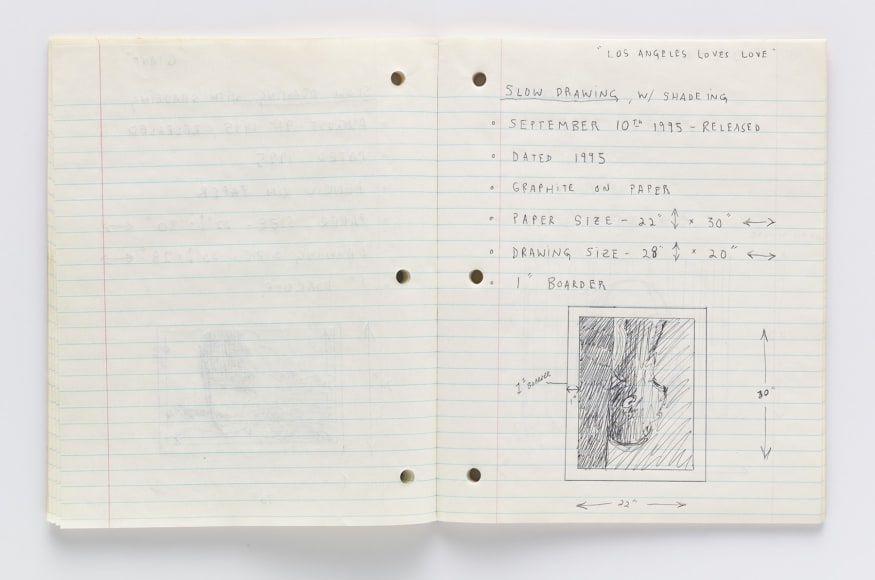 "LOS ANGELES LOVES LOVE"
SLOW DRAWING, W/ SHADEING
• SEPTEMBER 10TH 1995 - RELEASED
• DATED 1995
• GRAPHITE ON PAPER
• PAPER SIZE - 22" ↕ × 30" ↔
• DRAWING SIZE - 28" ↕ × 20" ↔
• 1" BOARDER
1" BOARDER
1"
30"
22"